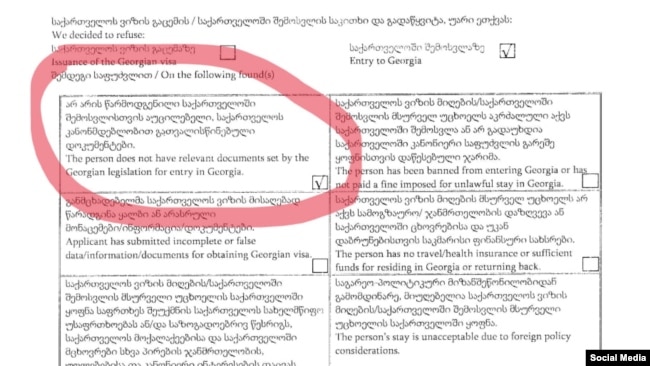 საქართველოს ვიზის გაცემის / საქართველოში შემოსვლის საკითხი და გადაწყვიტა, უარი ეთქვას:
We decided to refuse:
საქართველოს ვიზის გაცემაზე
Issuance of the Georgian visa
საქართველოში შემოსვლაზე
Entry to Georgia
შემდეგი საფუძვლით / On the following found(s)
არ არის წარმოდგენილი საქართველოში
შემოსვლისთვის აუცილებელი, საქართველოს
კანონმდებლობით გათვალისწინებული
დოკუმენტები.
The person does not have relevant documents set by the
Georgian legislation for entry in Georgia.
საქართველოს ვიზის მიღების/საქართველოში
შემოსვლის მსურველ უცხოელს აკრძალული აქვს
საქართველოში შემოსვლა ან არ გადაუხდია
საქართველოში კანონიერი საფუძვლის გარეშე
ყოფნისთვის დაწესებული ჯარიმა.
The person has been banned from entering Georgia or has
not paid a fine imposed for unlawful stay in Georgia.
განმცხადებელმა საქართველოს ვიზის მისაღებად
წარადგინა ყალბი ან არასრული
მონაცემები/ინფორმაცია/დოკუმენტები.
Applicant has submitted incomplete or false
data/information/documents for obtaining Georgian visa.
საქართველოს ვიზის მიღების მსურველ უცხოელს არ
აქვს სამოგზაურო/ ჯანმრთელობის დაზღვევა ან
საქართველოში ცხოვრებისა და უკან
დაბრუნებისთვის საკმარისი ფინანსური სახსრები.
The person has no travel/health insurance or sufficient
funds for residing in Georgia or returning back.
საქართველოს ვიზის მიღების/საქართველოში
შემოსვლის მსურველი უცხოელის საქართველოში
ყოფნა საფრთხეს შეუქმნის საქართველოს სახელმწიფო
უსაფრთხოებას ან/და საზოგადოებრივ წესრიგს,
საქართველოს მოქალაქეებისა და საქართველოში
მცხოვრები სხვა პირების ჯანმრთელობის,
საგარეო-პოლიტიკური მიზანშეწონილობიდან
გამომდინარე, მიუღებელია საქართველოს ვიზის
მიღების/საქართველოში შემოსვლის მსურველი
უცხოელის საქართველოში ყოფნა.
The person's stay is unacceptable due to foreign policy
considerations.
Social Media